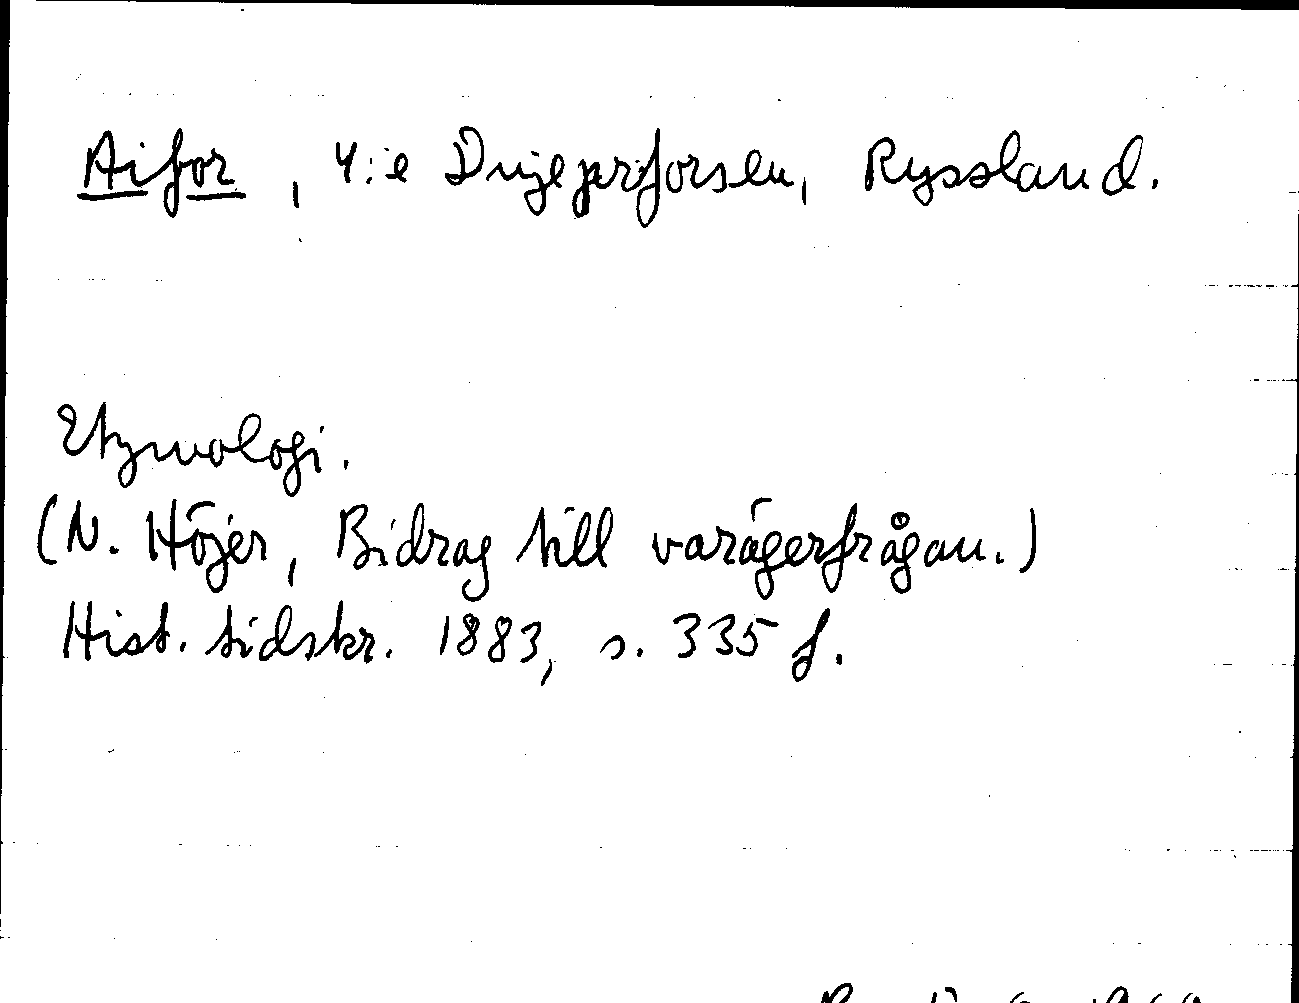 Aifor, 4:e Dnjeperforsen, Ryssland.
Etymologi.
(N. Höjer, Bidrag till varägerfrågan.)
Hist. tidskr. 1883, s. 335 f.